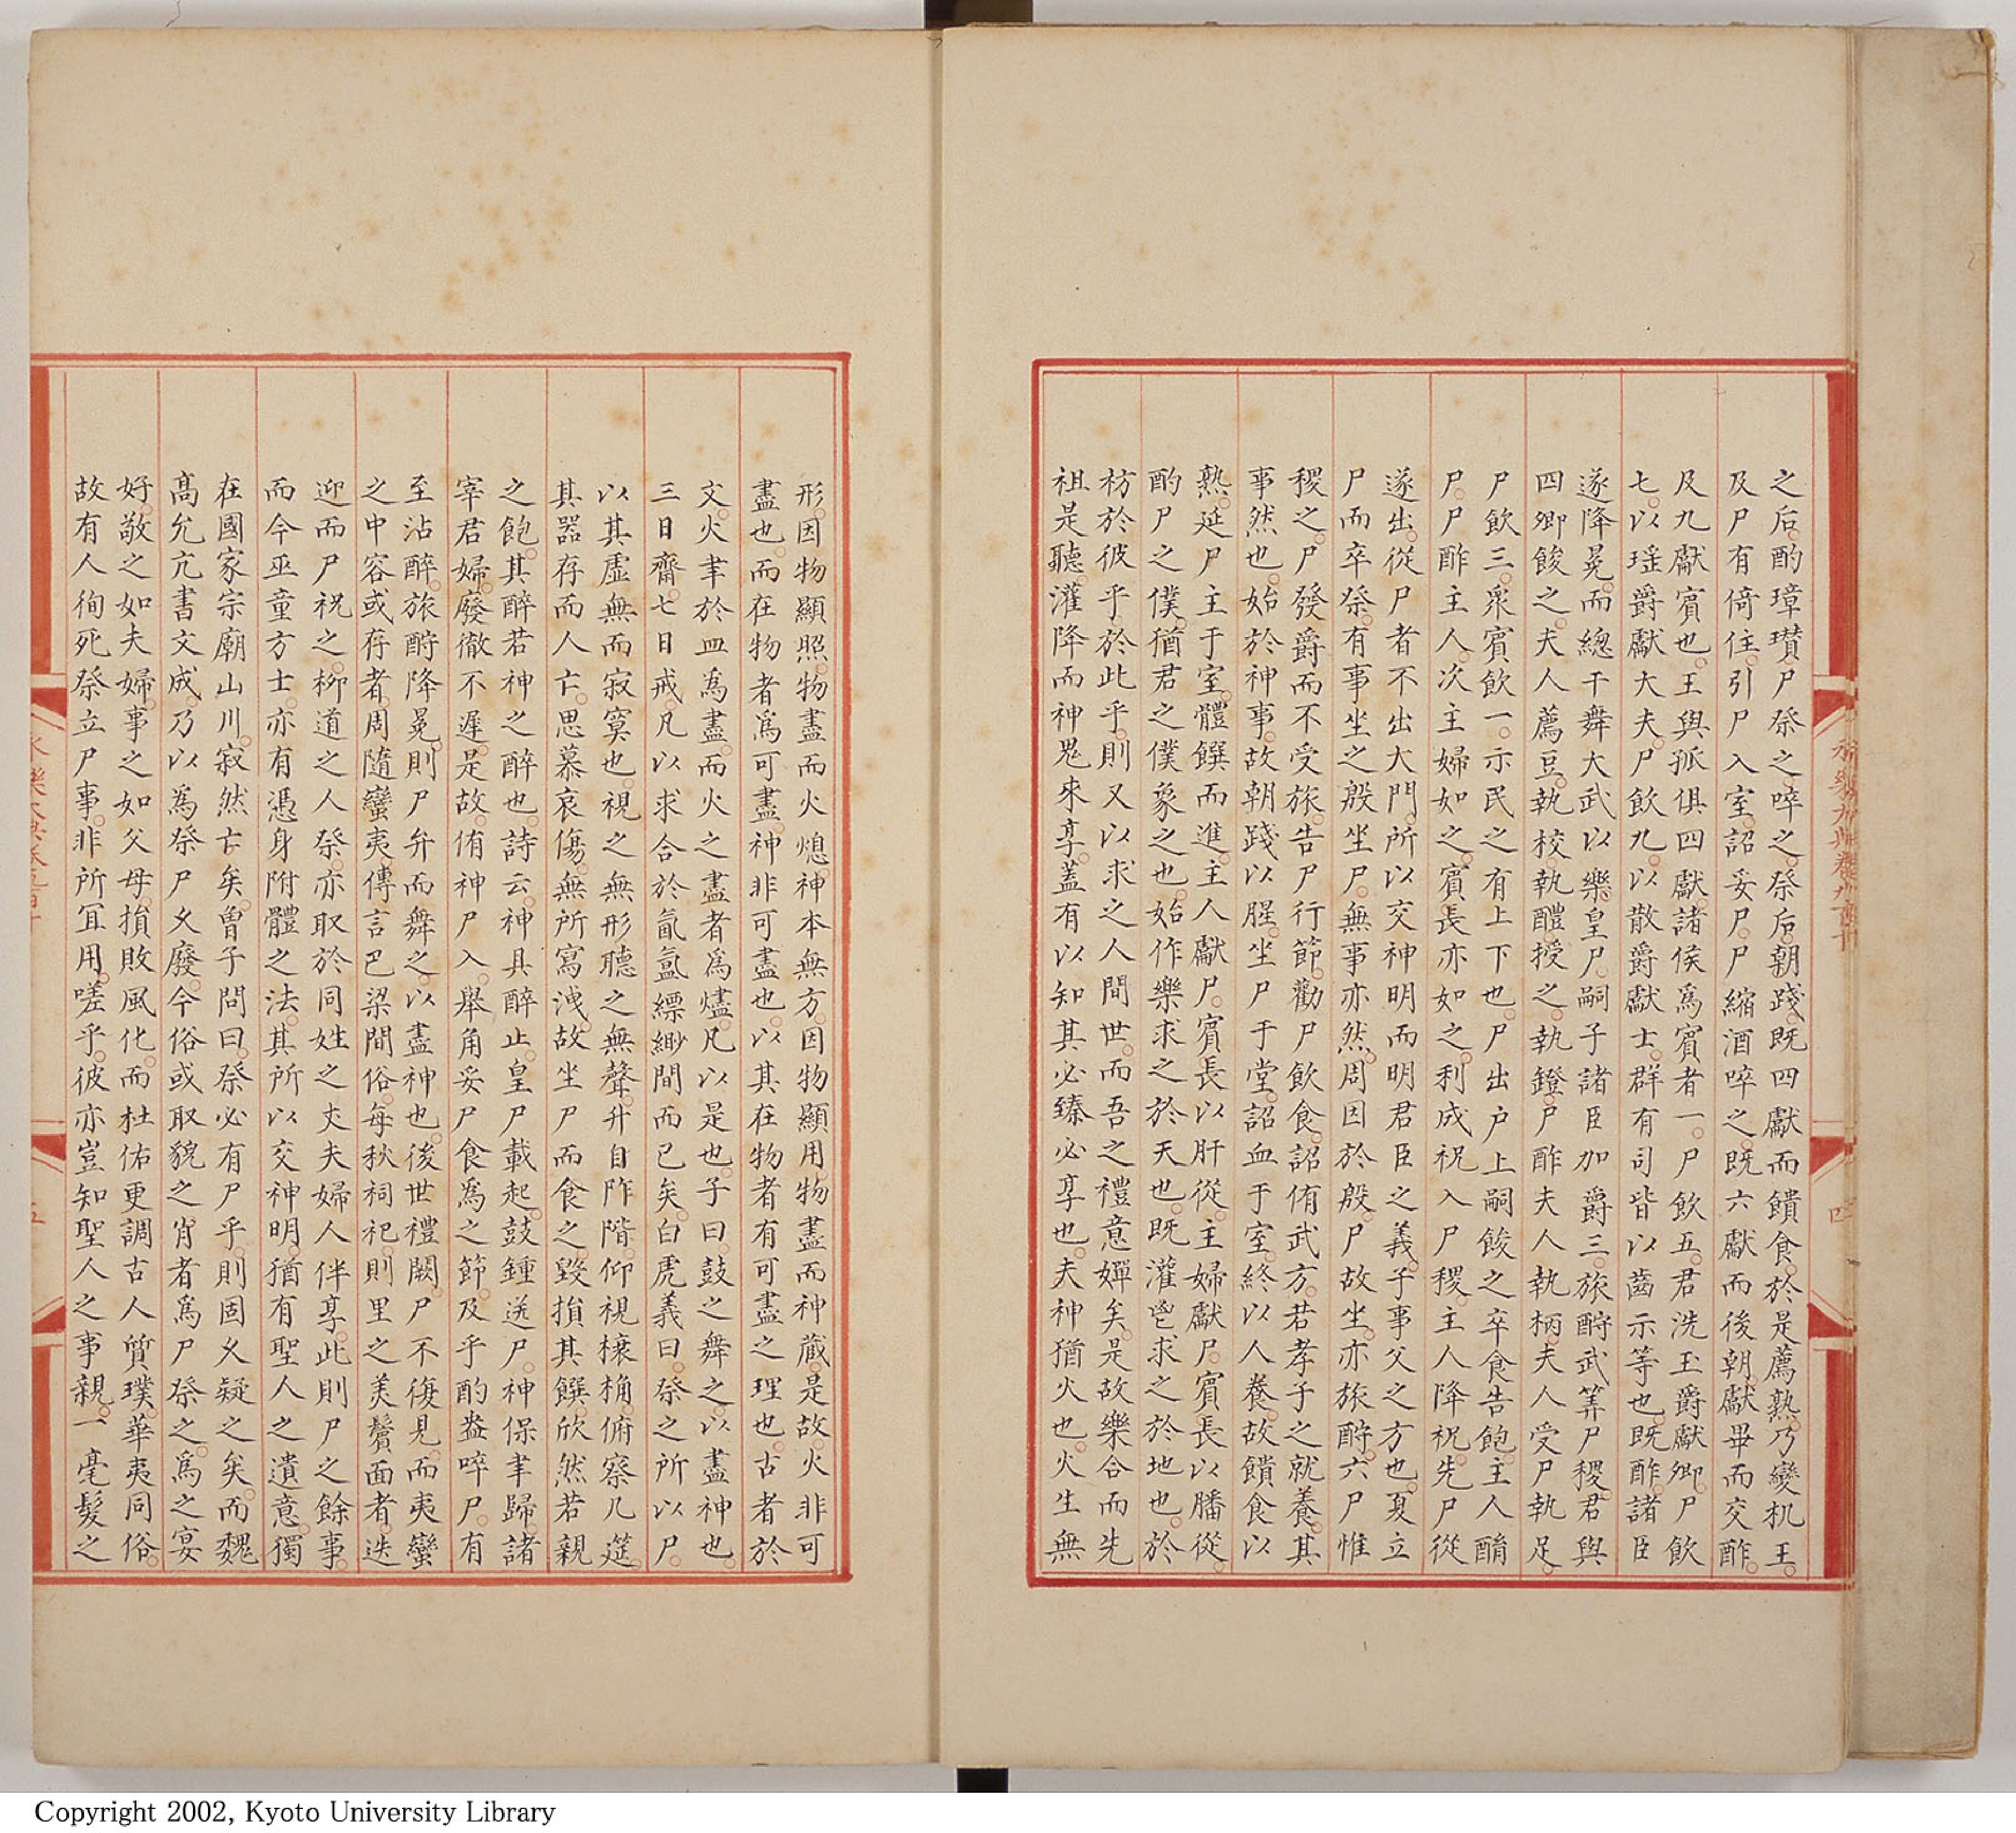 之后。酌璋瓚尸祭之啐之。祭后朝踐。既四獻而饋食。於是薦熟。乃變机王。
及尸有倚住。引尸入室。詔妥尸。尸縮酒啐之。既六獻而後朝獻畢而交酢。
及九獻賓也。王與孤俱四獻。諸侯爲賓者一。尸飲五。君洗玉爵獻卿。尸飲
七。以瑶爵獻大夫。尸飲九。以散爵獻士。群有司皆以齒示等也。既酢。諸臣
遂降冕。而總干舞大武以樂皇尸。嗣子諸臣加爵三。旅酧武筭尸稷。君與
四卿餕之。夫人薦豆。執校。執醴授之。執鐙。尸酢夫人執柄。夫人受尸執足。
尸飲三。衆賓飲一。示民之有上下也。尸出户上嗣餕之卒食告飽。主人酳
尸。尸酢主人。次主婦如之。賓長亦如之。利成祝入尸稷。主人降祝先。尸從
遂出。從尸者不出大門。所以交神明而明君臣之義。子事父之方也。夏立
尸而卒祭。有事坐之殷坐尸。無事亦然。周因於殷。尸故坐。亦旅酧。六尸惟
稷之。尸發爵而不受旅。告尸行節。勸尸飲食。詔侑武方。若孝子之就養。其
事然也。始於神事。故朝踐以腥。坐尸于堂。詔血于室。終以人養。故饋食以
熟。延尸主于室。體饌而進。主人獻尸。賓長以肝從。主婦獻尸。賓長以膰從。
酌尸之僕。猶君之僕象之也。始作樂求之於天也。既灌鬯求之於地也。於
枋於彼乎。於此乎。則又以求之人間世。而吾之禮意嬋矣。是故樂合而先
祖是聽。灌降而神鬼來享。蓋有以知其必臻必享也。夫神猶火也。火生無
形。因物顯照。物盡而火熄。神本無方。因物顯用。物盡而神藏。是故火非可
盡也。而在物者爲可盡。神非可盡也。以其在物者有可盡之理也。古者於
文。火聿於皿爲盡。而火之盡者爲燼。凡以是也。子曰。鼓之舞之。以盡神也。
三日齋。七日戒。凡以求合於氤氳縹緲間而已矣。白虎義曰。祭之所以尸。
以其虛無而寂寞也。視之無形聽之無聲。升自阼階。仰視榱桷。俯察几筵。
其器存而人亡。思慕哀傷。無所寫洩。故坐尸而食之。毀損其饌。欣然若親
之飽。其醉若神之醉也。詩云。神具醉止。皇尸載起。鼓鍾送尸。神保聿歸。諸
宰君婦。廢徹不遲。是故。侑神尸入。舉角妥尸食爲之節。及乎酌盎啐尸。有
至沾醉。旅酧降冕。則尸弁而舞之。以盡神也。後世禮闕。尸不復見。而夷蠻
之中容或存者。周隨蠻夷傳言巴梁間俗。每秋祠祀。則里之美鬢面者。迭
迎而尸祝之。柳道之人祭。亦取於同姓之丈夫婦人伴享。此則尸之餘事。
而今巫童方士。亦有憑身附體之法。其所以交神明。猶有聖人之遺意。獨
在國家宗廟山川。寂然亡矣。曾子問曰。祭必有尸乎。則固乆疑之矣。而魏
髙允亢書文成。乃以爲祭尸乆廢。今俗或取貌之肖者爲尸祭之。爲之宴
好。敬之如夫婦。事之如父母。損敗風化。而杜佑更謂古人質璞。華夷同俗。
故有人徇死祭立尸事。非所冝用。嗟乎。彼亦豈知聖人之事親。一毫髮之